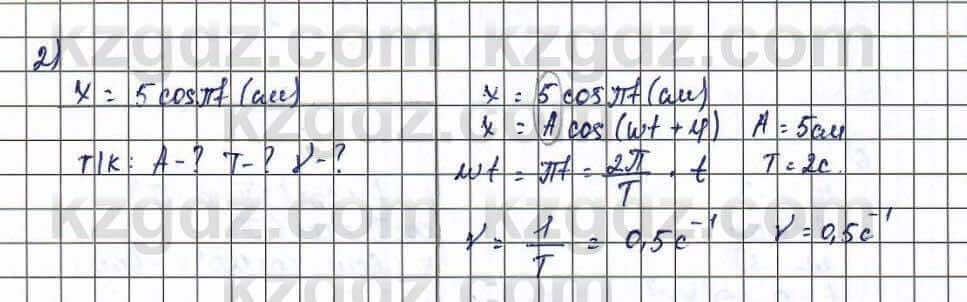 2)
x = 5 cos πt (см)
Т/к: A - ? T - ? ν - ?
x = 5 cos πt (см)
x = A cos (ωt + φ) A = 5 см
ωt = πt = 2π/T · t T = 2 с.
ν = 1/T = 0,5 с⁻¹ ν = 0,5 с⁻¹
kzgdz.com kzgdz.com
kzgdz.com kzgdz.com
kzgdz.com kzgdz.com